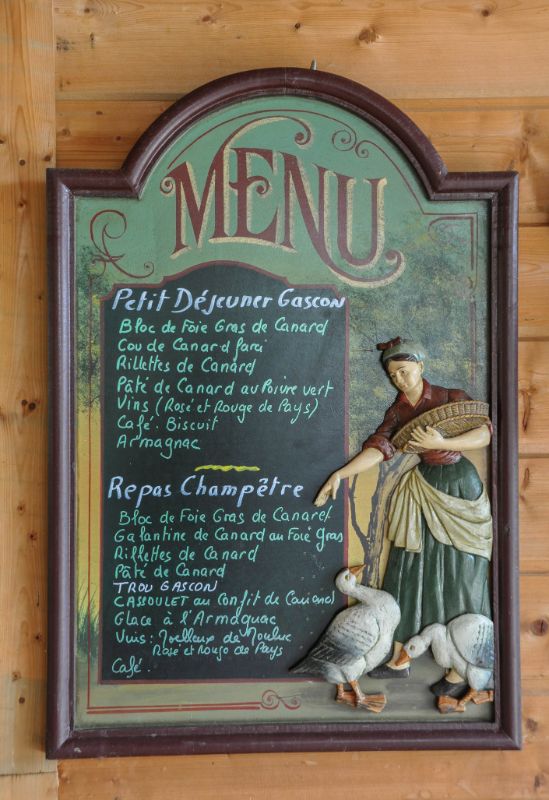 MENU
Petit Déjeuner Gascon
Bloc de Foie Gras de Canard
Cou de Canard farci
Rillettes de Canard
Pâté de Canard au Poivre vert
Vins (Rosé et Rouge de Pays)
Café. Biscuit
Armagnac
Repas Champêtre
Bloc de Foie Gras de Canard
Galantine de Canard au Foie Gras
Rillettes de Canard
Pâté de Canard
TROU GASCON
CASSOULET au Confit de Canard
Glace à l'Armagnac
Vins: Moelleux de
Rosé et Rouge de Pays
Café.